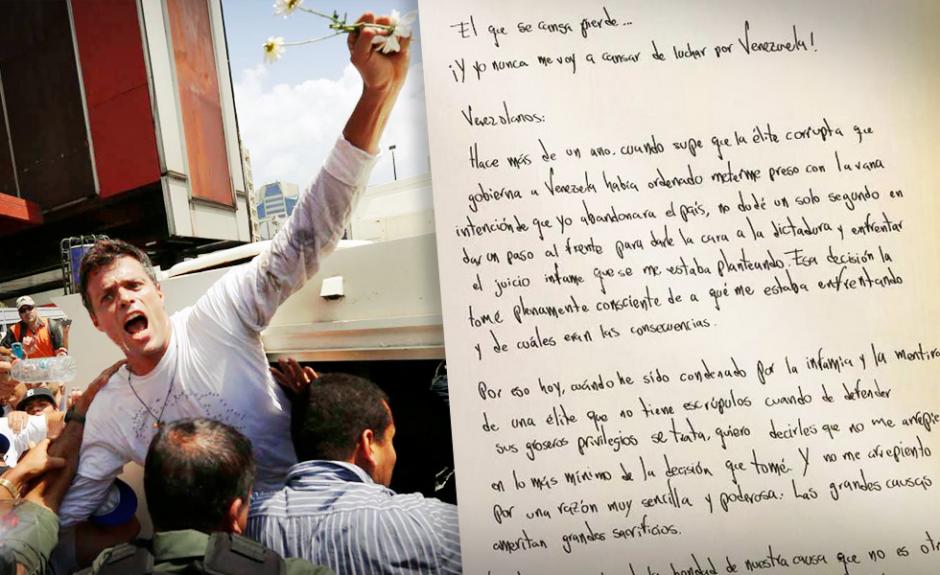 El que se cansa pierde...
¡Y yo nunca me voy a cansar de luchar por Venezuela!
Venezolanos:
Hace más de un año, cuando supe que la élite corrupta que
gobierna a Venezuela había ordenado meterme preso con la vana
intención de que yo abandonara el país, no dudé un solo segundo en
dar un paso al frente para darle la cara a la dictadura y enfrentar
el juicio infame que se me estaba planteando. Esa decisión la
tomé plenamente consciente de a qué me estaba enfrentando
y de cuáles eran las consecuencias.
Por eso hoy, cuándo he sido condenado por la infamia y la mentira
de una élite que no tiene escrúpulos cuando de defender
sus groseros privilegios se trata, quiero decirles que no me arrepie
en lo más mínimo de la decisión que tomé. Y no me arrepiento
por una razón muy sencilla y poderosa: Las grandes causas
ameritan grandes sacrificios.
de nuestra causa que no es otr